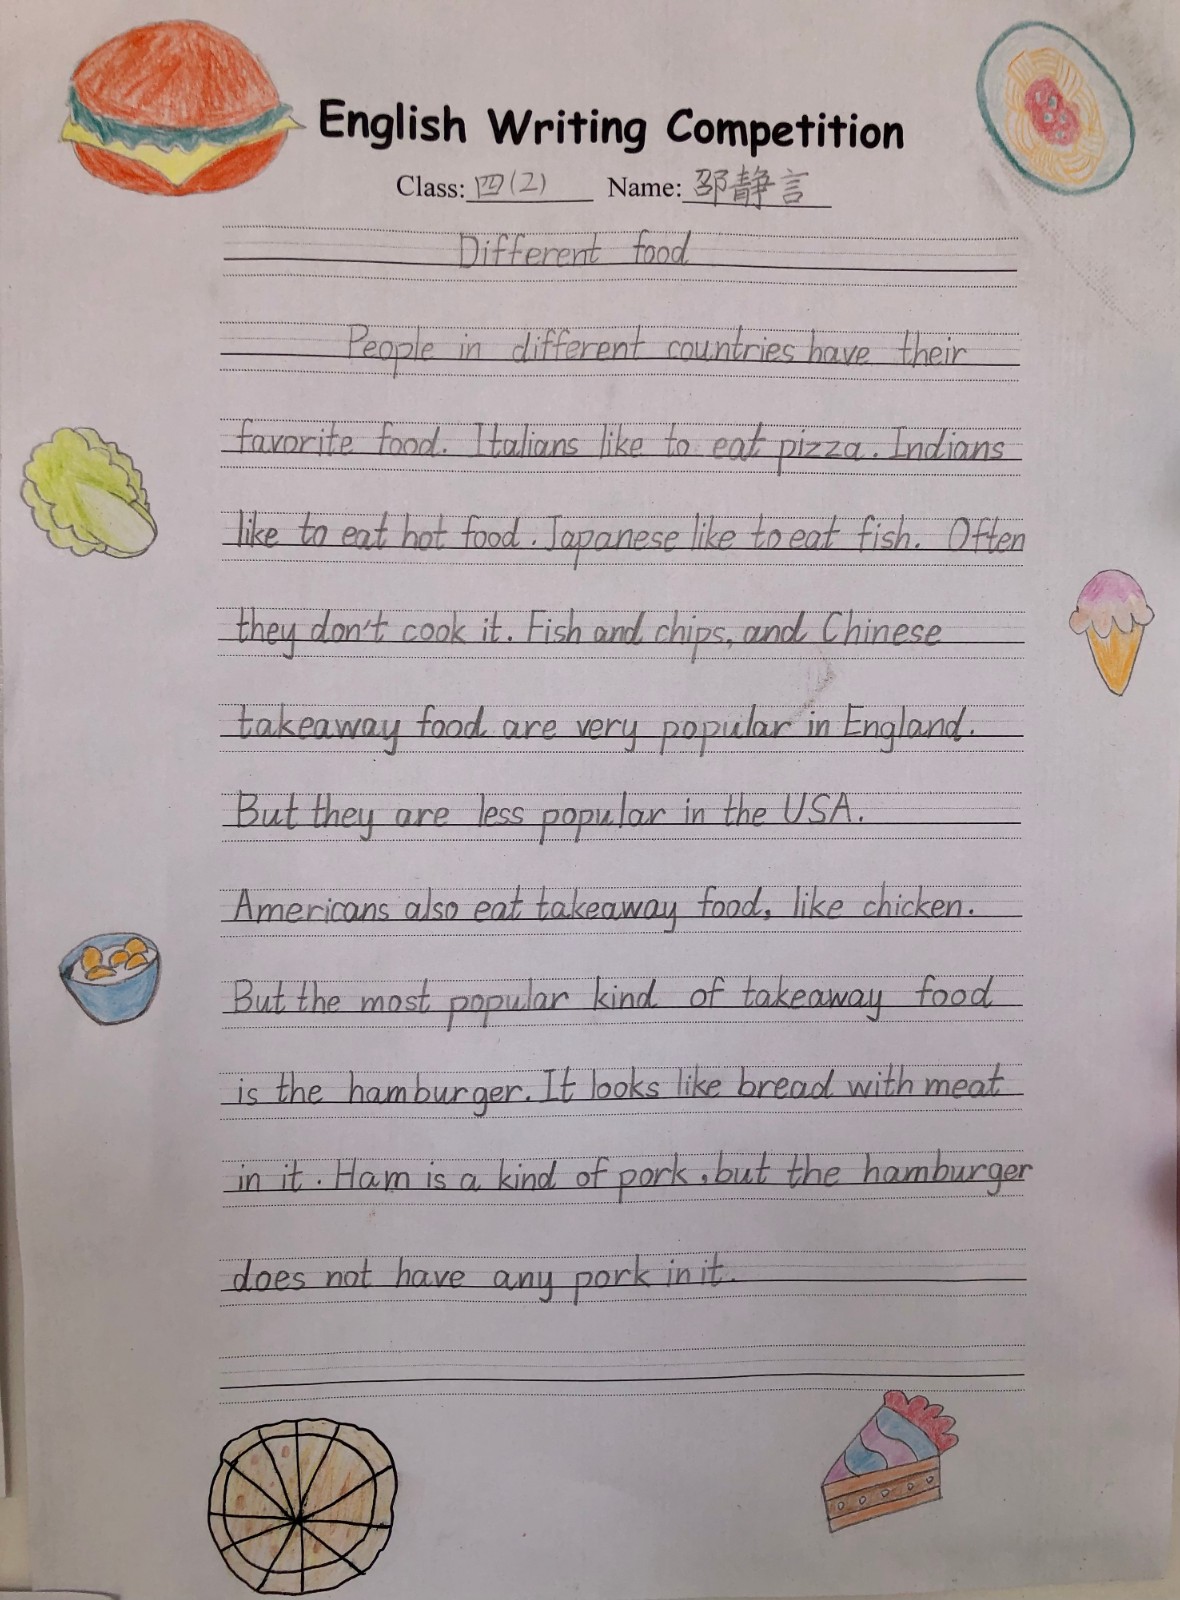 English Writing Competition
Class: 四(2) Name: 邵静言
Different food
People in different countries have their
favorite food. Italians like to eat pizza. Indians
like to eat hot food. Japanese like to eat fish. Often
they don't cook it. Fish and chips, and Chinese
takeaway food are very popular in England.
But they are less popular in the USA.
Americans also eat takeaway food, like chicken.
But the most popular kind of takeaway food
is the hamburger. It looks like bread with meat
in it. Ham is a kind of pork, but the hamburger
does not have any pork in it.